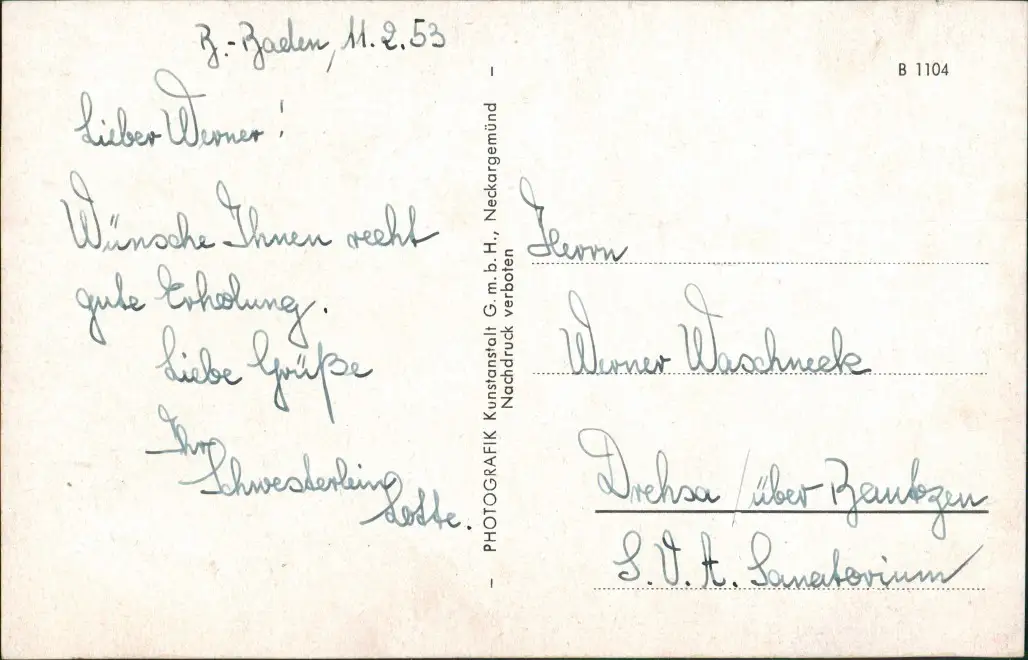 B.-Baden, 11.2.53
Lieber Werner!
Wünsche Ihnen recht
gute Erholung.
Liebe Grüße
Ihr
Schwesterlein
Lotte.
- PHOTOGRAFIK Kunstanstalt G.m.b.H., Neckargemünd -
Nachdruck verboten
B 1104
Herrn
Werner Waschneck
Drehsa / über Bautzen
S.V.A. Sanatorium